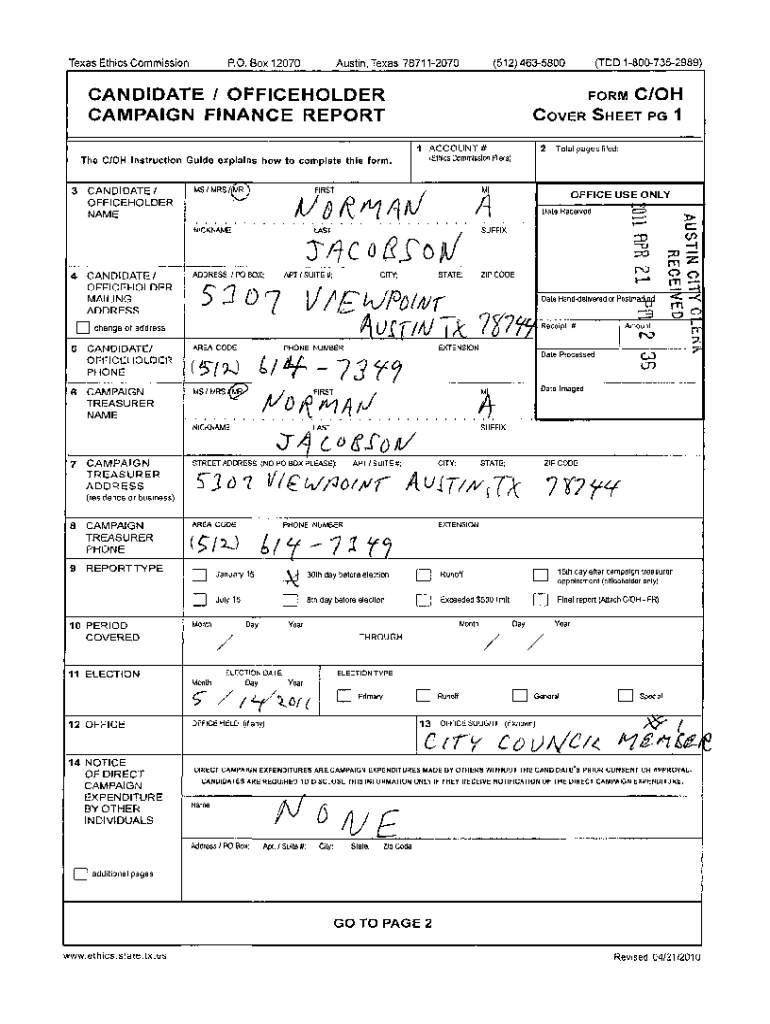 Texas Ethics Commission P.O. Box 12070 Austin, Texas 78711-2070 (512) 463-5800 (TDD 1-800-735-2989)
CANDIDATE / OFFICEHOLDER
CAMPAIGN FINANCE REPORT
FORM C/OH
COVER SHEET PG 1
The C/OH Instruction Guide explains how to complete this form.
1 ACCOUNT #
(Ethics Commission Filers)
2 Total pages filed:
3 CANDIDATE /
OFFICEHOLDER
NAME
MS / MRS / MR FIRST MI
NORMAN A
NICKNAME LAST SUFFIX
JACOBSON
OFFICE USE ONLY
Date Received
AUSTIN CITY CLERK
RECEIVED
2011 APR 21 PM 2 35
4 CANDIDATE /
OFFICEHOLDER
MAILING
ADDRESS
change of address
ADDRESS / PO BOX; APT / SUITE #; CITY; STATE; ZIP CODE
5307 VIEWPOINT
AUSTIN TX 78744
Date Hand-delivered or Postmarked
Receipt # Amount
5 CANDIDATE/
OFFICEHOLDER
PHONE
AREA CODE PHONE NUMBER EXTENSION
(512) 614-7349
Date Processed
6 CAMPAIGN
TREASURER
NAME
MS / MRS / MR FIRST MI
NORMAN A
NICKNAME LAST SUFFIX
JACOBSON
Date Imaged
7 CAMPAIGN
TREASURER
ADDRESS
(residence or business)
STREET ADDRESS (NO PO BOX PLEASE); APT / SUITE #; CITY; STATE; ZIP CODE
5307 VIEWPOINT AUSTIN, TX 78744
8 CAMPAIGN
TREASURER
PHONE
AREA CODE PHONE NUMBER EXTENSION
(512) 614-7349
9 REPORT TYPE
January 15 30th day before election Runoff 15th day after campaign treasurer
appointment (officeholder only)
July 15 8th day before election Exceeded $500 limit Final report (Attach C/OH - FR)
10 PERIOD
COVERED
Month Day Year THROUGH Month Day Year
/ / /
11 ELECTION
ELECTION DATE
Month Day Year
5 / 14/2011
ELECTION TYPE
Primary Runoff General Special
12 OFFICE
OFFICE HELD (if any)
13 OFFICE SOUGHT (if known)
# 1
CITY COUNCIL MEMBER
14 NOTICE
OF DIRECT
CAMPAIGN
EXPENDITURE
BY OTHER
INDIVIDUALS
additional pages
DIRECT CAMPAIGN EXPENDITURES ARE CAMPAIGN EXPENDITURES MADE BY OTHERS WITHOUT THE CANDIDATE'S PRIOR CONSENT OR APPROVAL.
CANDIDATES ARE REQUIRED TO DISCLOSE THIS INFORMATION ONLY IF THEY RECEIVE NOTIFICATION OF THE DIRECT CAMPAIGN EXPENDITURE.
Name
NONE
Address / PO Box; Apt. / Suite #; City; State; Zip Code
GO TO PAGE 2
www.ethics.state.tx.us Revised 04/21/2010